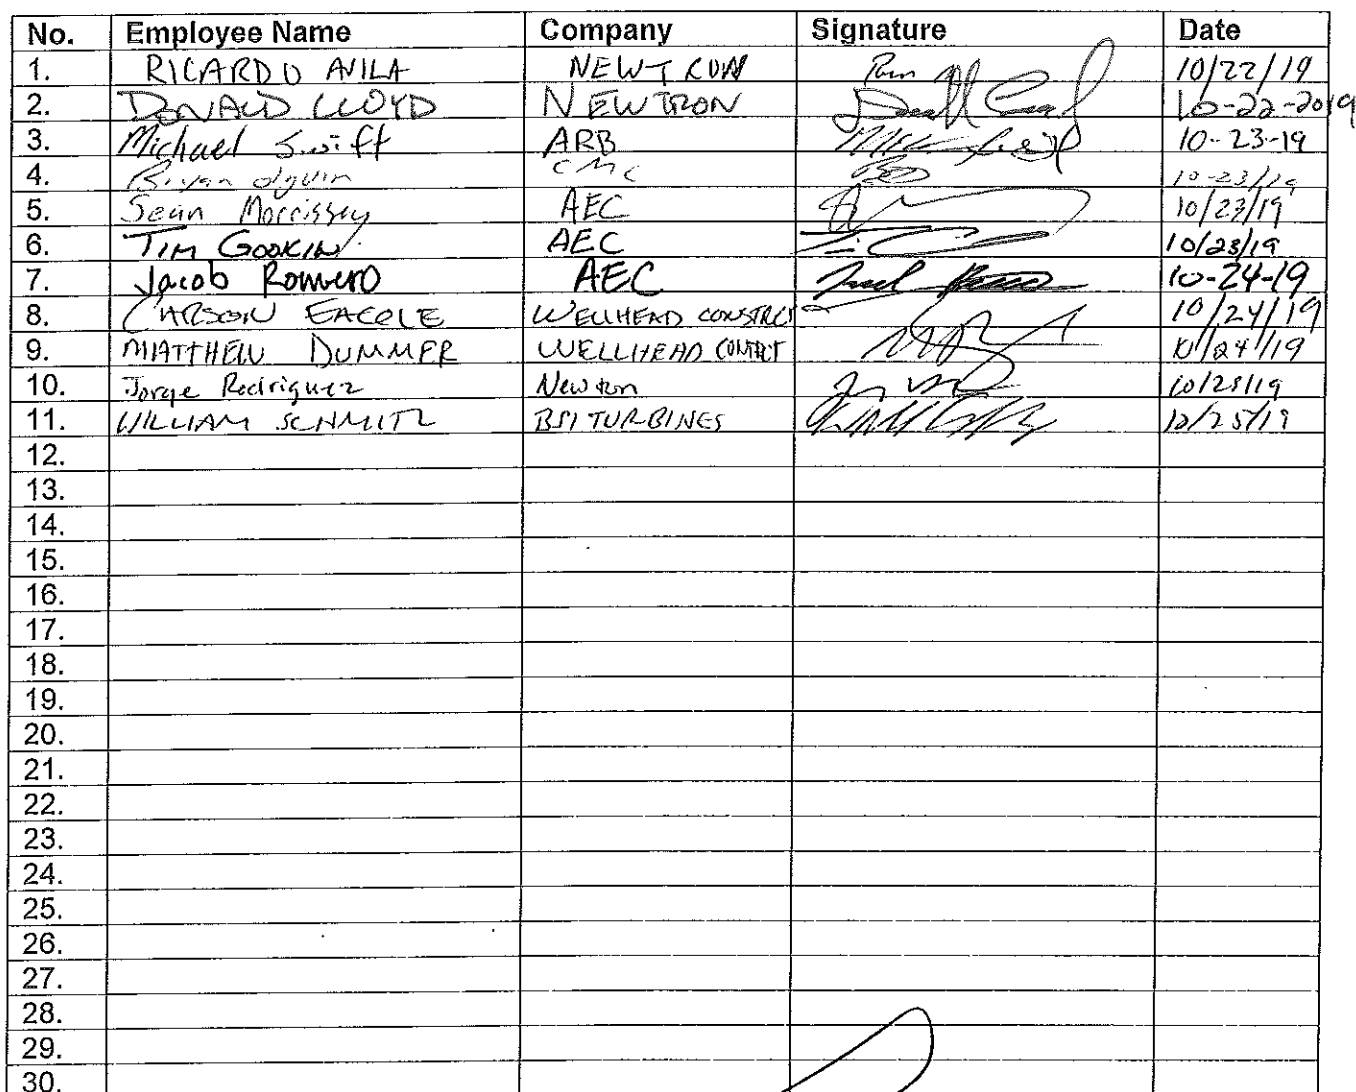 No. Employee Name Company Signature Date
1. RICARDO AVILA NEWTRON 10/22/19
2. DONALD LLOYD NEWTRON 10-22-2019
3. Michael Swift ARB 10-23-19
4. Bryan Olguin CMC 10-23/19
5. Sean Morrissey AEC 10/23/19
6. TIM GOOKIN AEC 10/23/19
7. Jacob Romero AEC 10-24-19
8. CARSON EACOLE WELLHEAD CONSTRUCT 10/24/19
9. MATTHEW DUMMER WELLHEAD 10/24/19
10. Jorge Rodriguez Newtron 10/25/19
11. WILLIAM SCHMITZ BSI TURBINES 10/25/19
12.
13.
14.
15.
16.
17.
18.
19.
20.
21.
22.
23.
24.
25.
26.
27.
28.
29.
30.